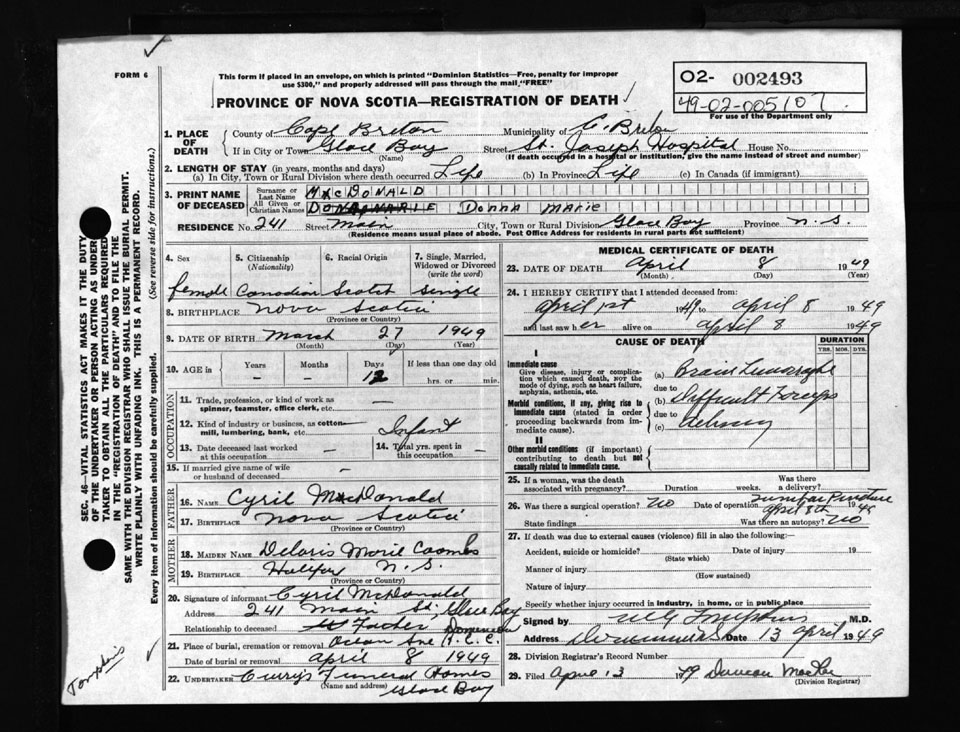 FORM 6
This form if placed in an envelope, on which is printed "Dominion Statistics—Free, penalty for improper
use $300," and properly addressed will pass through the mail, "FREE"
PROVINCE OF NOVA SCOTIA—REGISTRATION OF DEATH
O2- 002493
49-02-005107
For use of the Department only
1. PLACE OF DEATH
County of Cape Breton Municipality of C. Breton
If in City or Town Glace Bay Street St. Joseph Hospital House No.
(Name) (If death occurred in a hospital or institution, give the name instead of street and number)
2. LENGTH OF STAY (in years, months and days)
(a) In City, Town or Rural Division where death occurred Life (b) In Province Life (c) In Canada (if immigrant)
3. PRINT NAME OF DECEASED
Surname or Last Name MacDONALD
All Given or Christian Names DONNA MARIE Donna Marie
RESIDENCE No. 241 Street Main City, Town or Rural Division Glace Bay Province N.S.
(Residence means usual place of abode. Post Office Address for residents in rural parts not sufficient)
4. Sex
female
5. Citizenship
(Nationality)
Canadian
6. Racial Origin
Scotch
7. Single, Married,
Widowed or Divorced
(write the word)
Single
8. BIRTHPLACE Nova Scotia
(Province or Country)
9. DATE OF BIRTH March 27 1949
(Month) (Day) (Year)
10. AGE in
Years Months Days If less than one day old
– – 12 hrs. or min.
OCCUPATION
11. Trade, profession, or kind of work as
spinner, teamster, office clerk, etc. —
12. Kind of industry or business, as cotton
mill, lumbering, bank, etc. Infant
13. Date deceased last worked
at this occupation –
14. Total yrs. spent in
this occupation –
15. If married give name of wife
or husband of deceased –
FATHER
16. NAME Cyril MacDonald
17. BIRTHPLACE Nova Scotia
(Province or Country)
MOTHER
18. MAIDEN NAME Deloris Marie Coombs
19. BIRTHPLACE Halifax N.S.
(Province or Country)
20. Signature of informant Cyril McDonald
Address 241 Main St; Glace Bay
Relationship to deceased Father Dominion
21. Place of burial, cremation or removal Ocean Ave R.C.C.
Date of burial or removal April 8 1949
22. UNDERTAKER Curry's Funeral Homes
(Name and address) Glace Bay
MEDICAL CERTIFICATE OF DEATH
23. DATE OF DEATH April 8 1949
(Month) (Day) (Year)
24. I HEREBY CERTIFY that I attended deceased from:
April 1st 1949 to April 8 1949
and last saw her alive on April 8 1949
CAUSE OF DEATH
DURATION
YRS. MOS. DYS.
I
Immediate cause
Give disease, injury or complication
which caused death, NOT the
mode of dying, such as heart failure,
asphyxia, asthenia, etc.
(a) Brain
due to
Morbid conditions, if any, giving rise to
immediate cause (stated in order
proceeding backwards from immediate
cause).
(b) Difficult Forceps
due to
(c) delivery
II
Other morbid conditions (if important)
contributing to death but not
causally related to immediate cause.
25. If a woman, was the death
associated with pregnancy? Duration weeks. was there
a delivery?
26. Was there a surgical operation? No Date of operation April 8th 1949
Lumbar Puncture
State findings Was there an autopsy? No
27. If death was due to external causes (violence) fill in also the following:—
Accident, suicide or homicide? Date of injury 19
(State which)
Manner of injury
(How sustained)
Nature of injury
Specify whether injury occurred in industry, in home, or in public place
Signed by Tompkins M.D.
Address Dominion Date 13 April 1949
28. Division Registrar's Record Number
29. Filed April 13 49 Duncan
(Division Registrar)
SEC. 46—VITAL STATISTICS ACT MAKES IT THE DUTY
OF THE UNDERTAKER OR PERSON ACTING AS UNDERTAKER
TO OBTAIN ALL THE PARTICULARS REQUIRED
IN THE "REGISTRATION OF DEATH" AND TO FILE THE
SAME WITH THE DIVISION REGISTRAR WHO SHALL ISSUE THE BURIAL PERMIT.
WRITE PLAINLY WITH UNFADING INK. THIS IS A PERMANENT RECORD.
Every item of information should be carefully supplied. (See reverse side for instructions.)
Tompkins